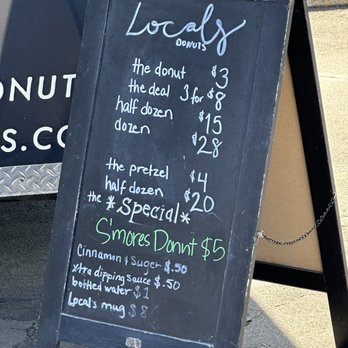 Locals
DONUTS
the donut $3
the deal 3 for $8
half dozen $15
dozen $28
the pretzel $4
half dozen $20
the *Special*
Smores Donut $5
Cinnamon & Sugar $.50
xtra dipping sauce $.50
bottled water $1
Local's mug $8
ONUT
S.CO